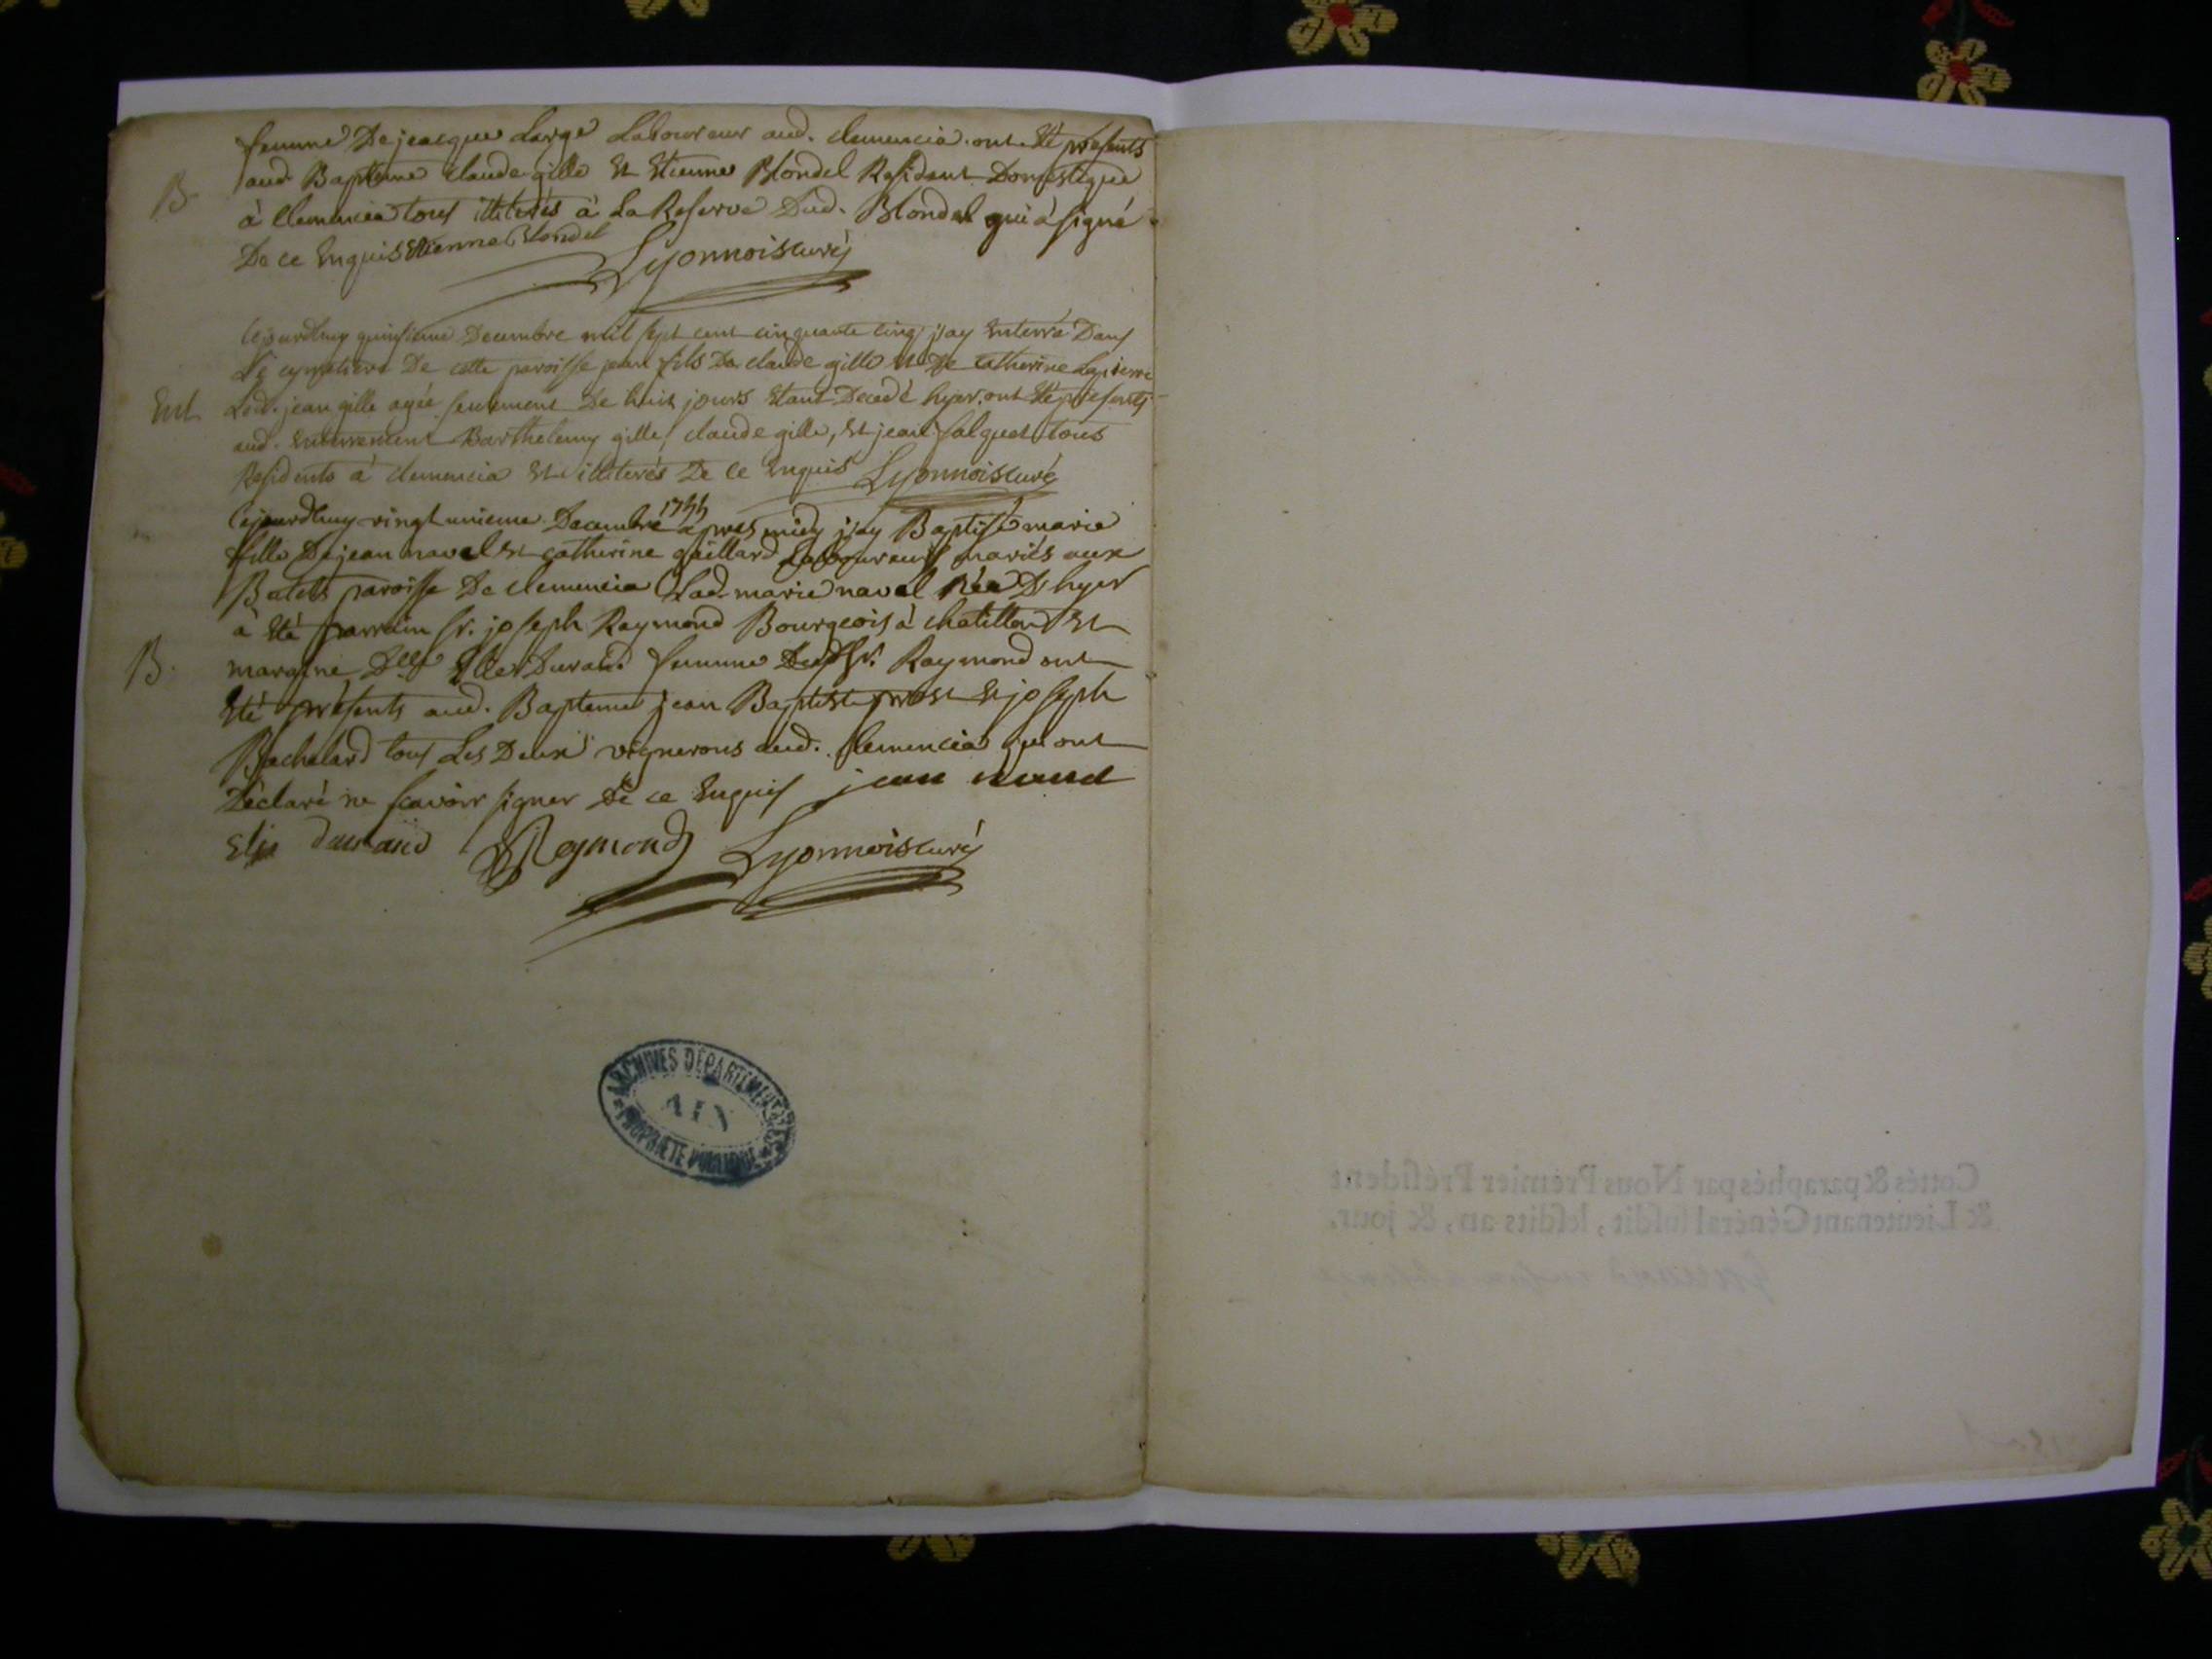 femme De jeacque Large Laboureur aud. clemencia. ont été présents
B. aud. Bapteme claude gille Et Etienne Blondel Residant Domestique
à clemencia tous illiterés à La Reserve Dud. Blondel qui à signé
De ce Enquis Etienne Blondel Lyonnois curé
Cejourdhuy quinsieme Decembre mil sept cent cinquante cinq j'ay Enterré Dans
Le cymetiere De cette paroisse jean fils De claude gille et De Catherine Lapierre
Ent. Led. jean gille agée seulement De huit jours Etant Decedé hyer. ont été présents
aud. Enterrement Barthelemy gille, claude gille, Et jean falquet tous
Residents à clemencia Et illiterés De ce Enquis Lyonnois curé
Cejourdhuy vingt unieme Decembre 1755 apres midy j'ay Baptisé marie
fille De jean naval Et catherine gaillard Laboureurs mariés aux
paroisse De clemencia Lad. marie naval Née D'hyer
à été parrain Sr. joseph Raymond Bourgeois à chatillon Et
B. maraine Dlle Durand femme Dud Sr. Raymond ont
Eté présents aud. Bapteme jean Baptiste prost Et joseph
Bachelard tous Les Deux vignerons aud. clemencia qui ont
Déclaré ne scavoir signer De ce Enquis jean
durand Reymond Lyonnois curé
ARCHIVES DÉPARTEMENTALES
AIN
PROPRIÉTÉ PUBLIQUE
Cottés & paraphés par Nous Premier Président
& Lieutenant Général susdit, lesdits an, & jour.